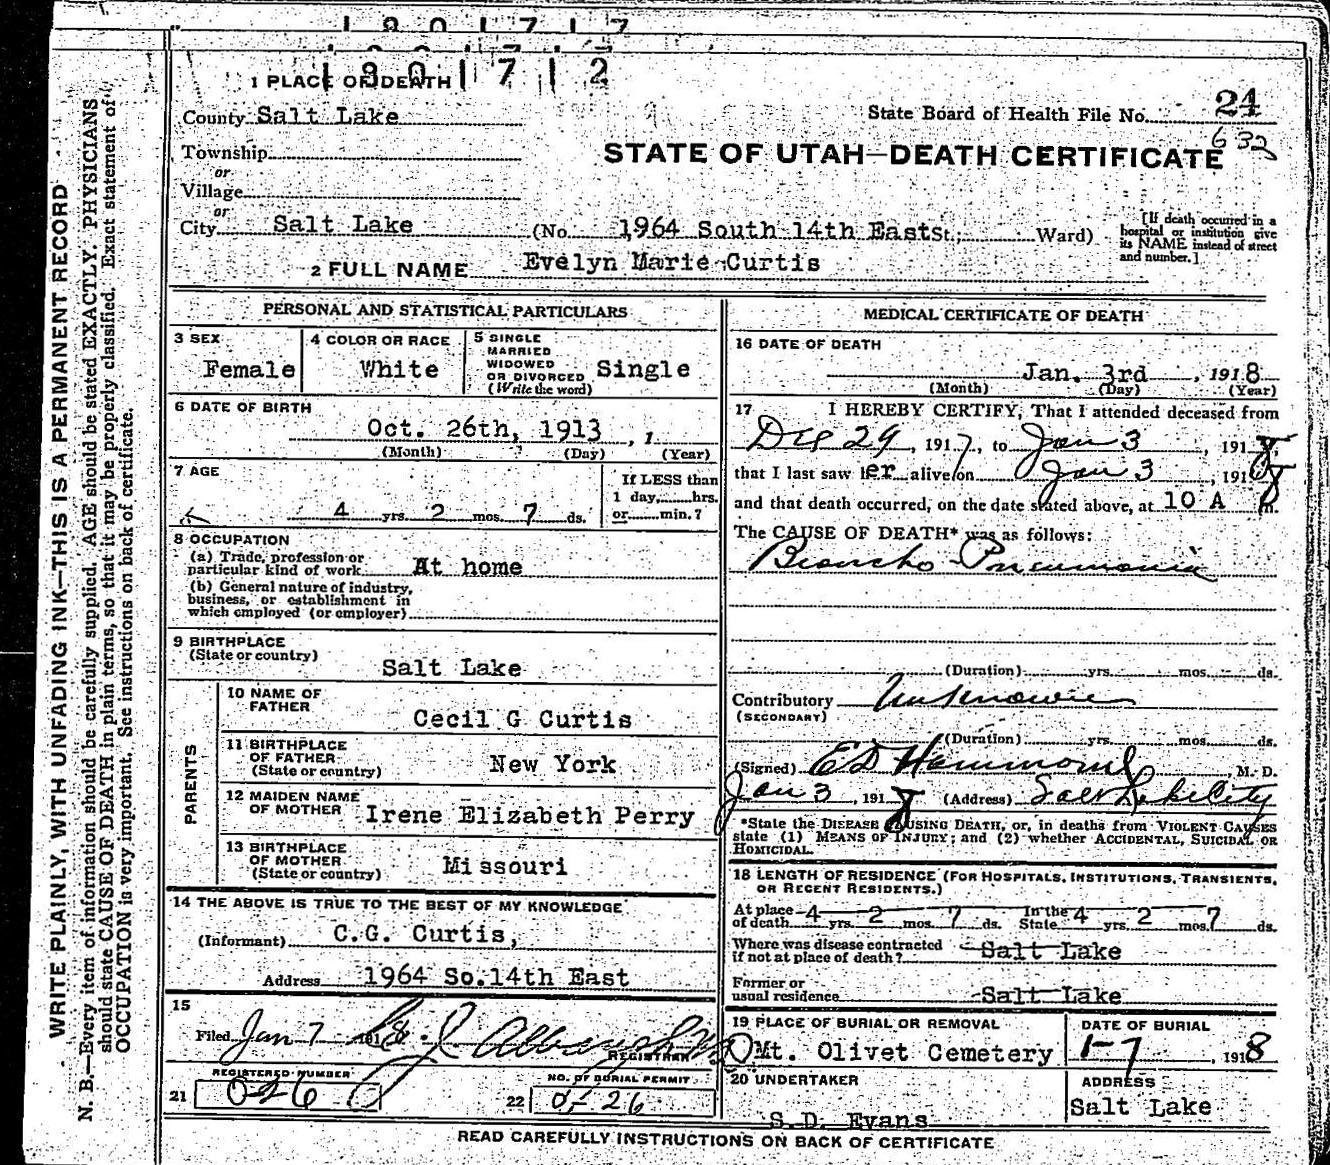 1 8 0 1 7 1 7
1 8 0 1 7 1 2
1 PLACE OF DEATH
County Salt Lake
State Board of Health File No. 24
632
Township
or
Village
or
City Salt Lake (No. 1964 South 14th East St.; Ward)
STATE OF UTAH—DEATH CERTIFICATE
[If death occurred in a
hospital or institution give
its NAME instead of street
and number.]
2 FULL NAME Evelyn Marie Curtis
PERSONAL AND STATISTICAL PARTICULARS
3 SEX
Female
4 COLOR OR RACE
White
5 SINGLE
MARRIED
WIDOWED
OR DIVORCED
(Write the word)
Single
6 DATE OF BIRTH
Oct. 26th, 1913 , 1
(Month) (Day) (Year)
7 AGE
4 yrs. 2 mos. 7 ds.
If LESS than
1 day, hrs.
or min.?
8 OCCUPATION
(a) Trade, profession or
particular kind of work At home
(b) General nature of industry,
business, or establishment in
which employed (or employer)
9 BIRTHPLACE
(State or country)
Salt Lake
PARENTS
10 NAME OF
FATHER
Cecil G Curtis
11 BIRTHPLACE
OF FATHER
(State or country)
New York
12 MAIDEN NAME
OF MOTHER
Irene Elizabeth Perry
13 BIRTHPLACE
OF MOTHER
(State or country)
Missouri
14 THE ABOVE IS TRUE TO THE BEST OF MY KNOWLEDGE
(Informant) C.G. Curtis,
Address 1964 So.14th East
15
Filed Jan 7 1918
REGISTRAR
REGISTERED NUMBER
21 026
NO. OF BURIAL PERMIT
22 0526
MEDICAL CERTIFICATE OF DEATH
16 DATE OF DEATH
Jan. 3rd , 1918
(Month) (Day) (Year)
17 I HEREBY CERTIFY, That I attended deceased from
Dec 29, 1917, to Jan 3, 1918,
that I last saw her alive on Jan 3, 1918
and that death occurred, on the date stated above, at 10 A m.
The CAUSE OF DEATH* was as follows:
Broncho Pneumonia
(Duration) yrs. mos. ds.
Contributory Unknown
(SECONDARY)
(Duration) yrs. mos. ds.
(Signed) E D Hammond, M. D.
Jan 3, 1918 (Address) Salt Lake City
*State the DISEASE CAUSING DEATH, or, in deaths from VIOLENT CAUSES
state (1) MEANS OF INJURY; and (2) whether ACCIDENTAL, SUICIDAL OR
HOMICIDAL.
18 LENGTH OF RESIDENCE (FOR HOSPITALS, INSTITUTIONS, TRANSIENTS,
OR RECENT RESIDENTS.)
At place
of death 4 yrs. 2 mos. 7 ds. In the
State 4 yrs. 2 mos. 7 ds.
Where was disease contracted
if not at place of death? Salt Lake
Former or
usual residence Salt Lake
19 PLACE OF BURIAL OR REMOVAL
Mt. Olivet Cemetery
DATE OF BURIAL
1-7, 1918
20 UNDERTAKER
S.D. Evans
ADDRESS
Salt Lake
READ CAREFULLY INSTRUCTIONS ON BACK OF CERTIFICATE
WRITE PLAINLY, WITH UNFADING INK—THIS IS A PERMANENT RECORD
N. B.—Every item of information should be carefully supplied. AGE should be stated EXACTLY. PHYSICIANS
should state CAUSE OF DEATH in plain terms, so that it may be properly classified. Exact statement of
OCCUPATION is very important. See instructions on back of certificate.